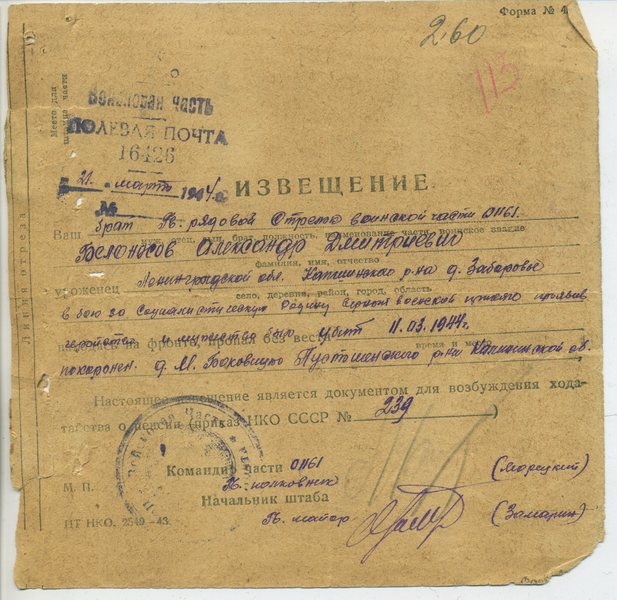 Форма № 4
260
113
Место для
штампа части
Воинская часть
ПОЛЕВАЯ ПОЧТА
16426
21 март 1944 г.
№
ИЗВЕЩЕНИЕ
Ваш брат Кр. рядовой Стрелок воинской части 01161.
муж, сын, брат, должность, наименование части, воинское звание
Белоусов Александр Дмитриевич
фамилия, имя, отчество
уроженец Ленинградской обл. р-на д. Заборовье
село, деревня, район, город, область
в бою за Социалистическую Родину верный воинской присяге проявив
геройство и мужество был убит 11.03.1944г.
находясь на фронте, пропал без вести
время и место
похоронен. д. М. Пустошенского р-на Калининской об.
Настоящее извещение является документом для возбуждения хода-
тайства о пенсии (приказ НКО СССР № 239)
Линия отреза
Командир части 01161
П. полковник (Морецкий)
М. П.
Начальник штаба
П. майор (Замарин)
ПТ НКО. 2549—43.